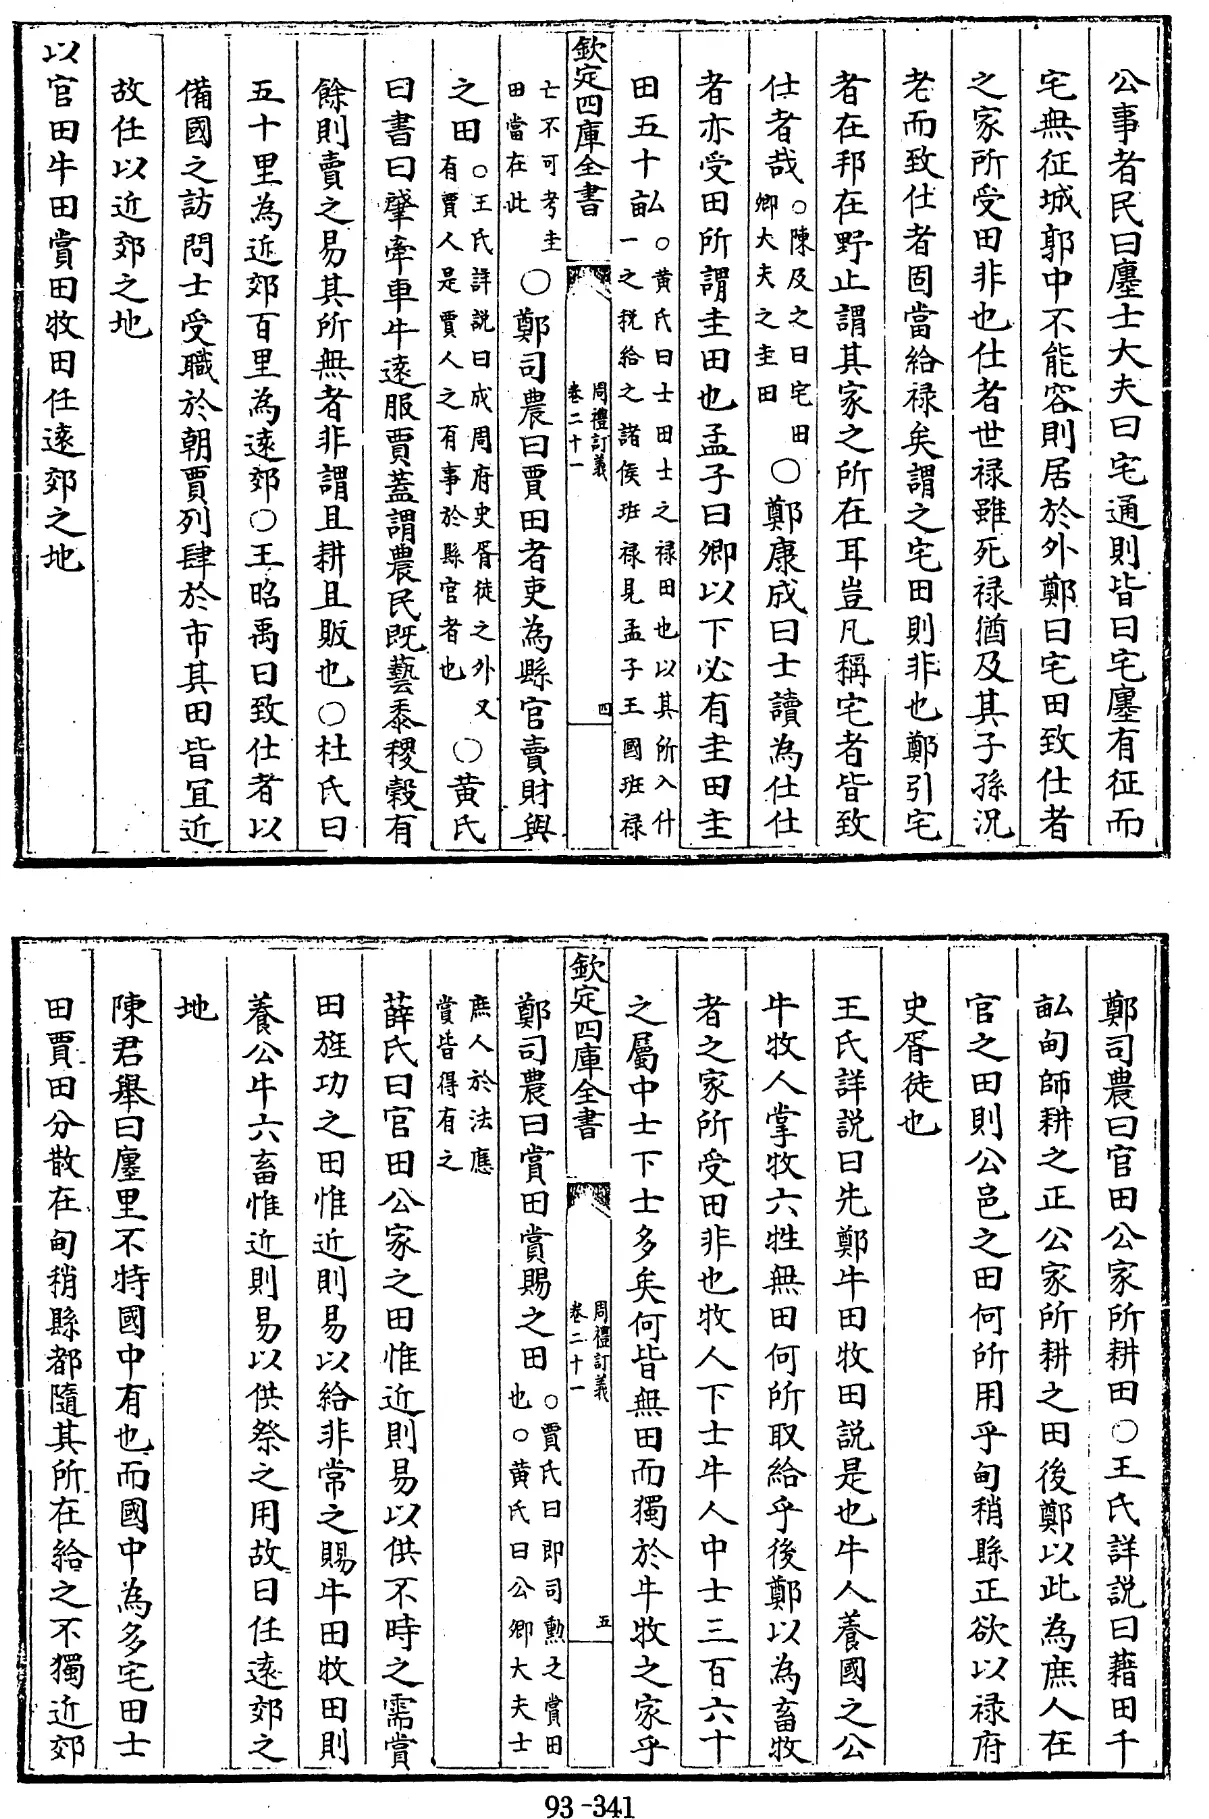 公事者民曰廛士大夫曰宅通則皆曰宅廛有征而
宅無征城郭中不能容則居於外鄭曰宅田致仕者
之家所受田非也仕者世禄雖死禄猶及其子孫況
老而致仕者固當給禄矣謂之宅田則非也鄭引宅
者在邦在野止謂其家之所在耳豈凡稱宅者皆致
仕者哉○陳及之曰宅田
卿大夫之圭田
○鄭康成曰士讀為仕仕
者亦受田所謂圭田也孟子曰卿以下必有圭田圭
田五十畝○黄氏曰士田士之禄田也以其所入什
一之税給之諸侯班禄見孟子王國班禄
欽定四庫全書
周禮訂義
卷二十一
四
亡不可考圭
田當在此
○鄭司農曰賈田者吏為縣官賣財與
之田○王氏詳説曰成周府史胥徒之外又
有賈人是賈人之有事於縣官者也
○黄氏
曰書曰肇牽車牛遠服賈蓋謂農民既藝黍稷穀有
餘則賣之易其所無者非謂且耕且販也○杜氏曰
五十里為近郊百里為遠郊○王昭禹曰致仕者以
備國之訪問士受職於朝賈列肆於市其田皆宜近
故任以近郊之地
以官田牛田賞田牧田任遠郊之地
鄭司農曰官田公家所耕田○王氏詳説曰藉田千
畝甸師耕之正公家所耕之田後鄭以此為庶人在
官之田則公邑之田何所用乎甸稍縣正欲以禄府
史胥徒也
王氏詳説曰先鄭牛田牧田説是也牛人養國之公
牛牧人掌牧六牲無田何所取給乎後鄭以為畜牧
者之家所受田非也牧人下士牛人中士三百六十
之屬中士下士多矣何皆無田而獨於牛牧之家乎
欽定四庫全書
周禮訂義
卷二十一
五
鄭司農曰賞田賞賜之田○賈氏曰即司勲之賞田
也○黄氏曰公卿大夫士
庶人於法應
賞皆得有之
薛氏曰官田公家之田惟近則易以供不時之需賞
田旌功之田惟近則易以給非常之賜牛田牧田則
養公牛六畜惟近則易以供祭之用故曰任遠郊之
地
陳君舉曰廛里不特國中有也而國中為多宅田士
田賈田分散在甸稍縣都隨其所在給之不獨近郊
93-341